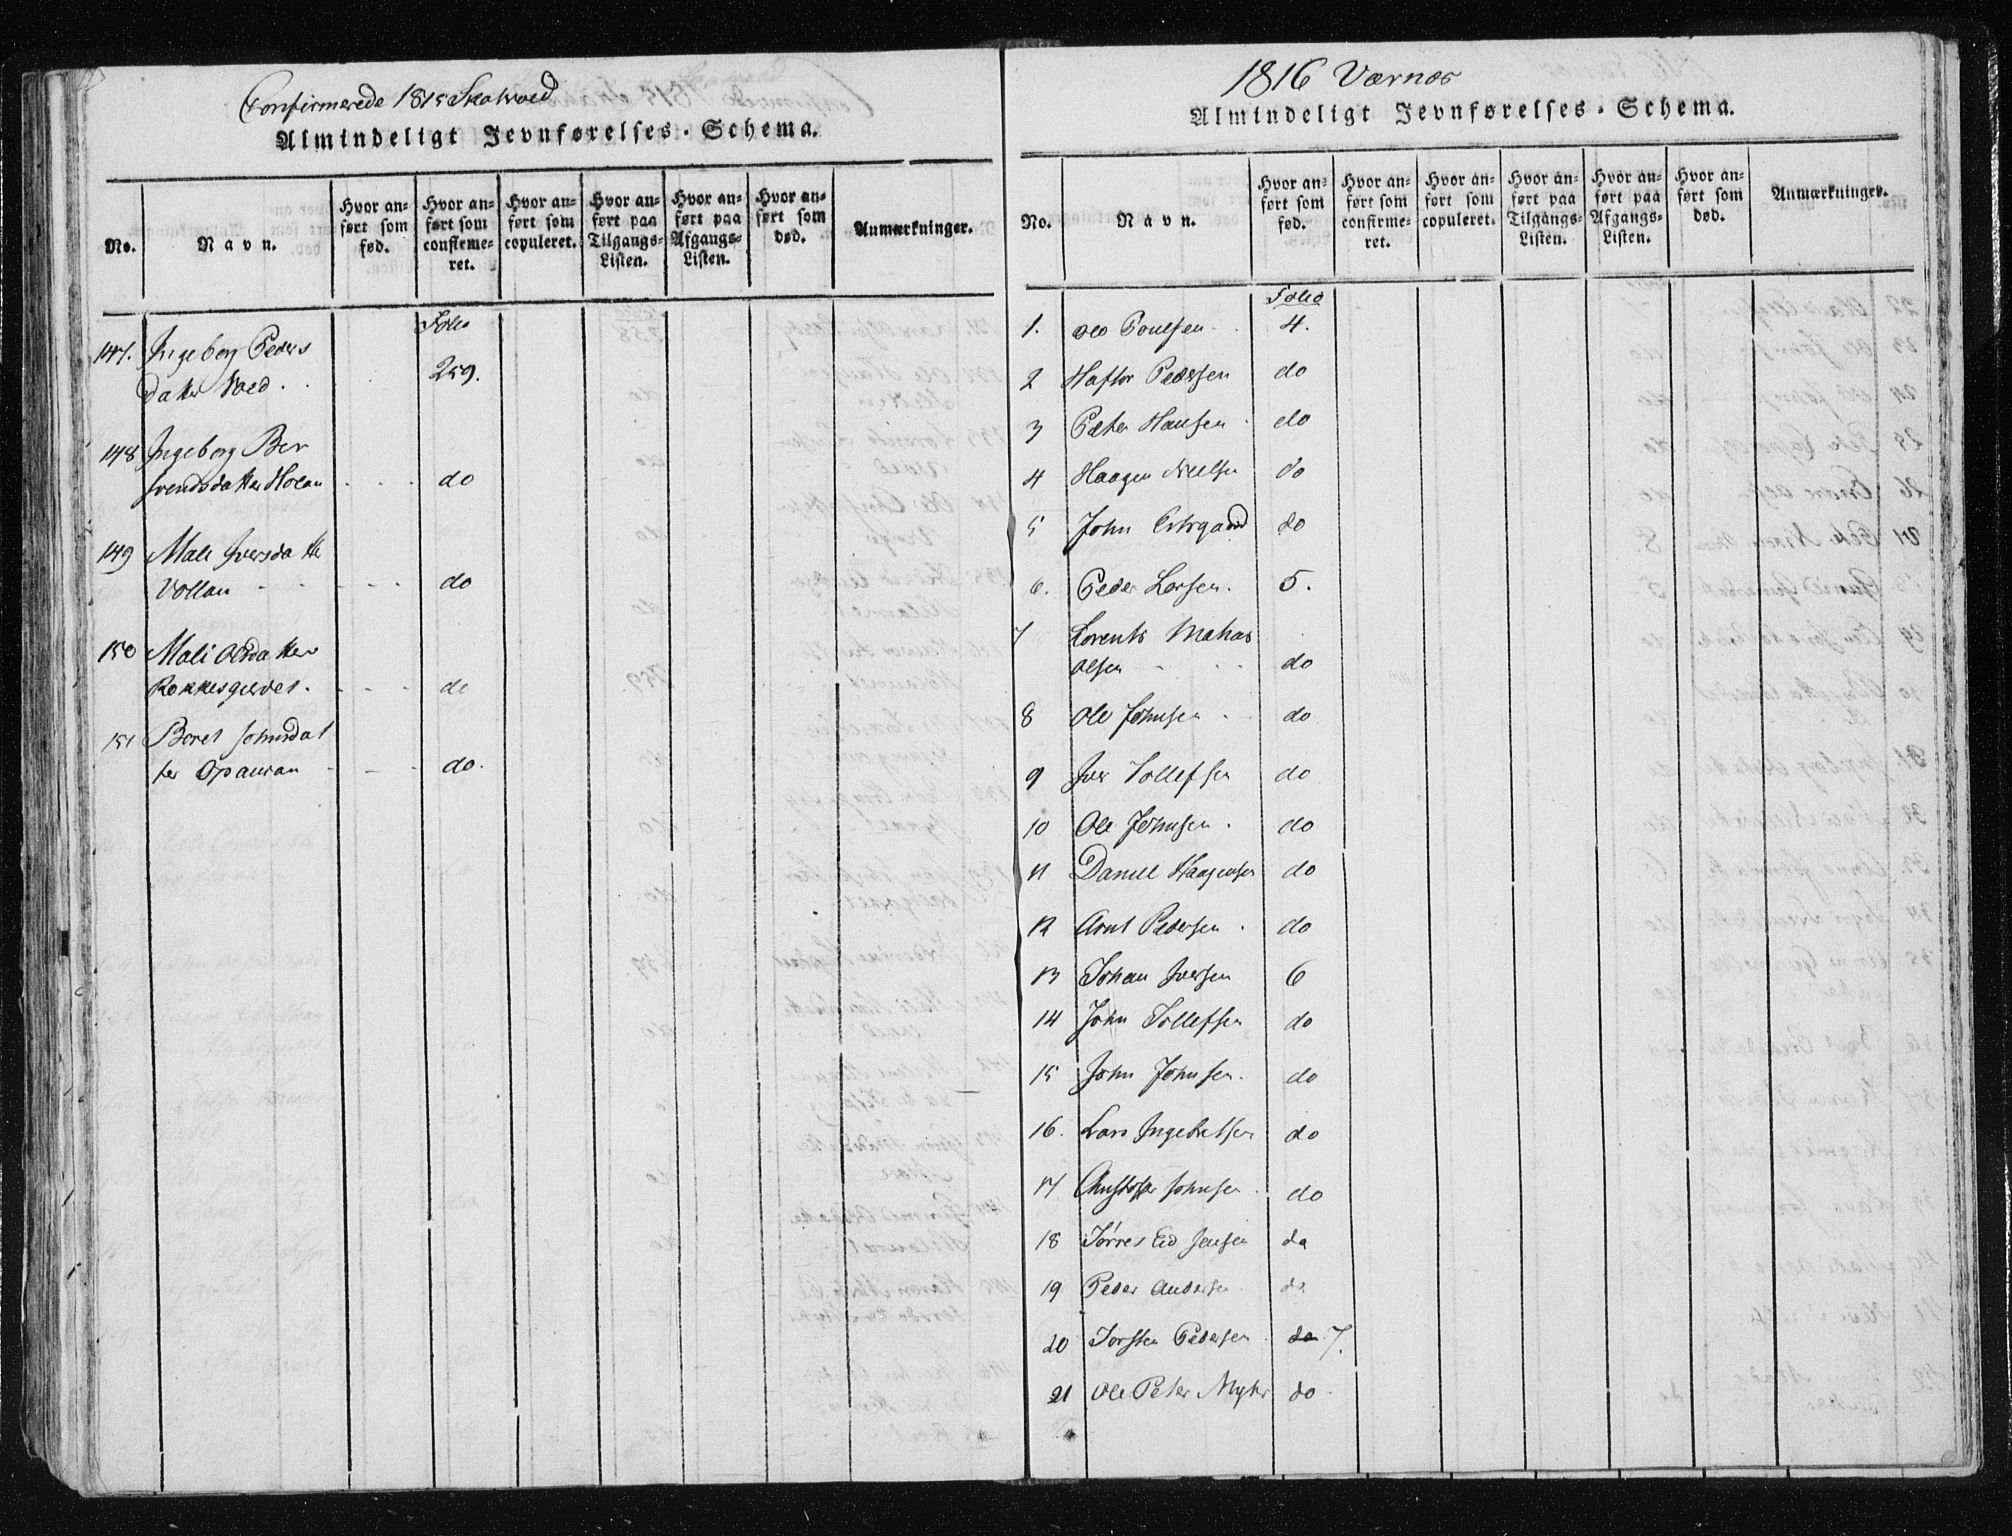 Confirmerede 1815 Skatvold
Almindeligt Jevnførelses-Schema.
No. Navn. Hvor anført som fød. Hvor anført som confirmeret. Hvor anført som copuleret. Hvor anført paa Tilgangs-Listen. Hvor anført paa Afgangs-Listen. Hvor anført som død. Anmærkninger.
Folio
147. Ingeborg Peders
datter Voed. 259.
148 Ingeborg Ber
svendsdatter Holan do
149 Mali Iversdatter
Vollan do
150 Mali Olsdatter
do
151 Beret Johnsdat
ter Opauran do.
1816 Værnes
Almindeligt Jevnførelses-Schema.
No. Navn. Hvor anført som fød. Hvor anført som confirmeret. Hvor anført som copuleret. Hvor anført paa Tilgangs-Listen. Hvor anført paa Afgangs-Listen. Hvor anført som død. Anmærkninger.
Folio
1. Ole Poulsen 4.
2 Haftor Pedersen do
3 Peter Hansen do
4 Haagen Nielsen do
5 John do
6. Peder Larsen. 5.
7 Lorents
Olsen do
8 Ole Johnsen do
9 Iver Tollefsen do
10 Ole Johnsen. do
11 Daniel Haagensen do
12 Arnt Pedersen. do
13 Johan Iversen 6
14 John Tollefsen do
15 John Johnsen. do
16. Lars Ingebretsen do
17 Christopher Johnsen do
18 Tørres Jensen do
19 Peder Andersen do
20 Torsten Pedersen do 7.
21 Ole Peter Myhr do